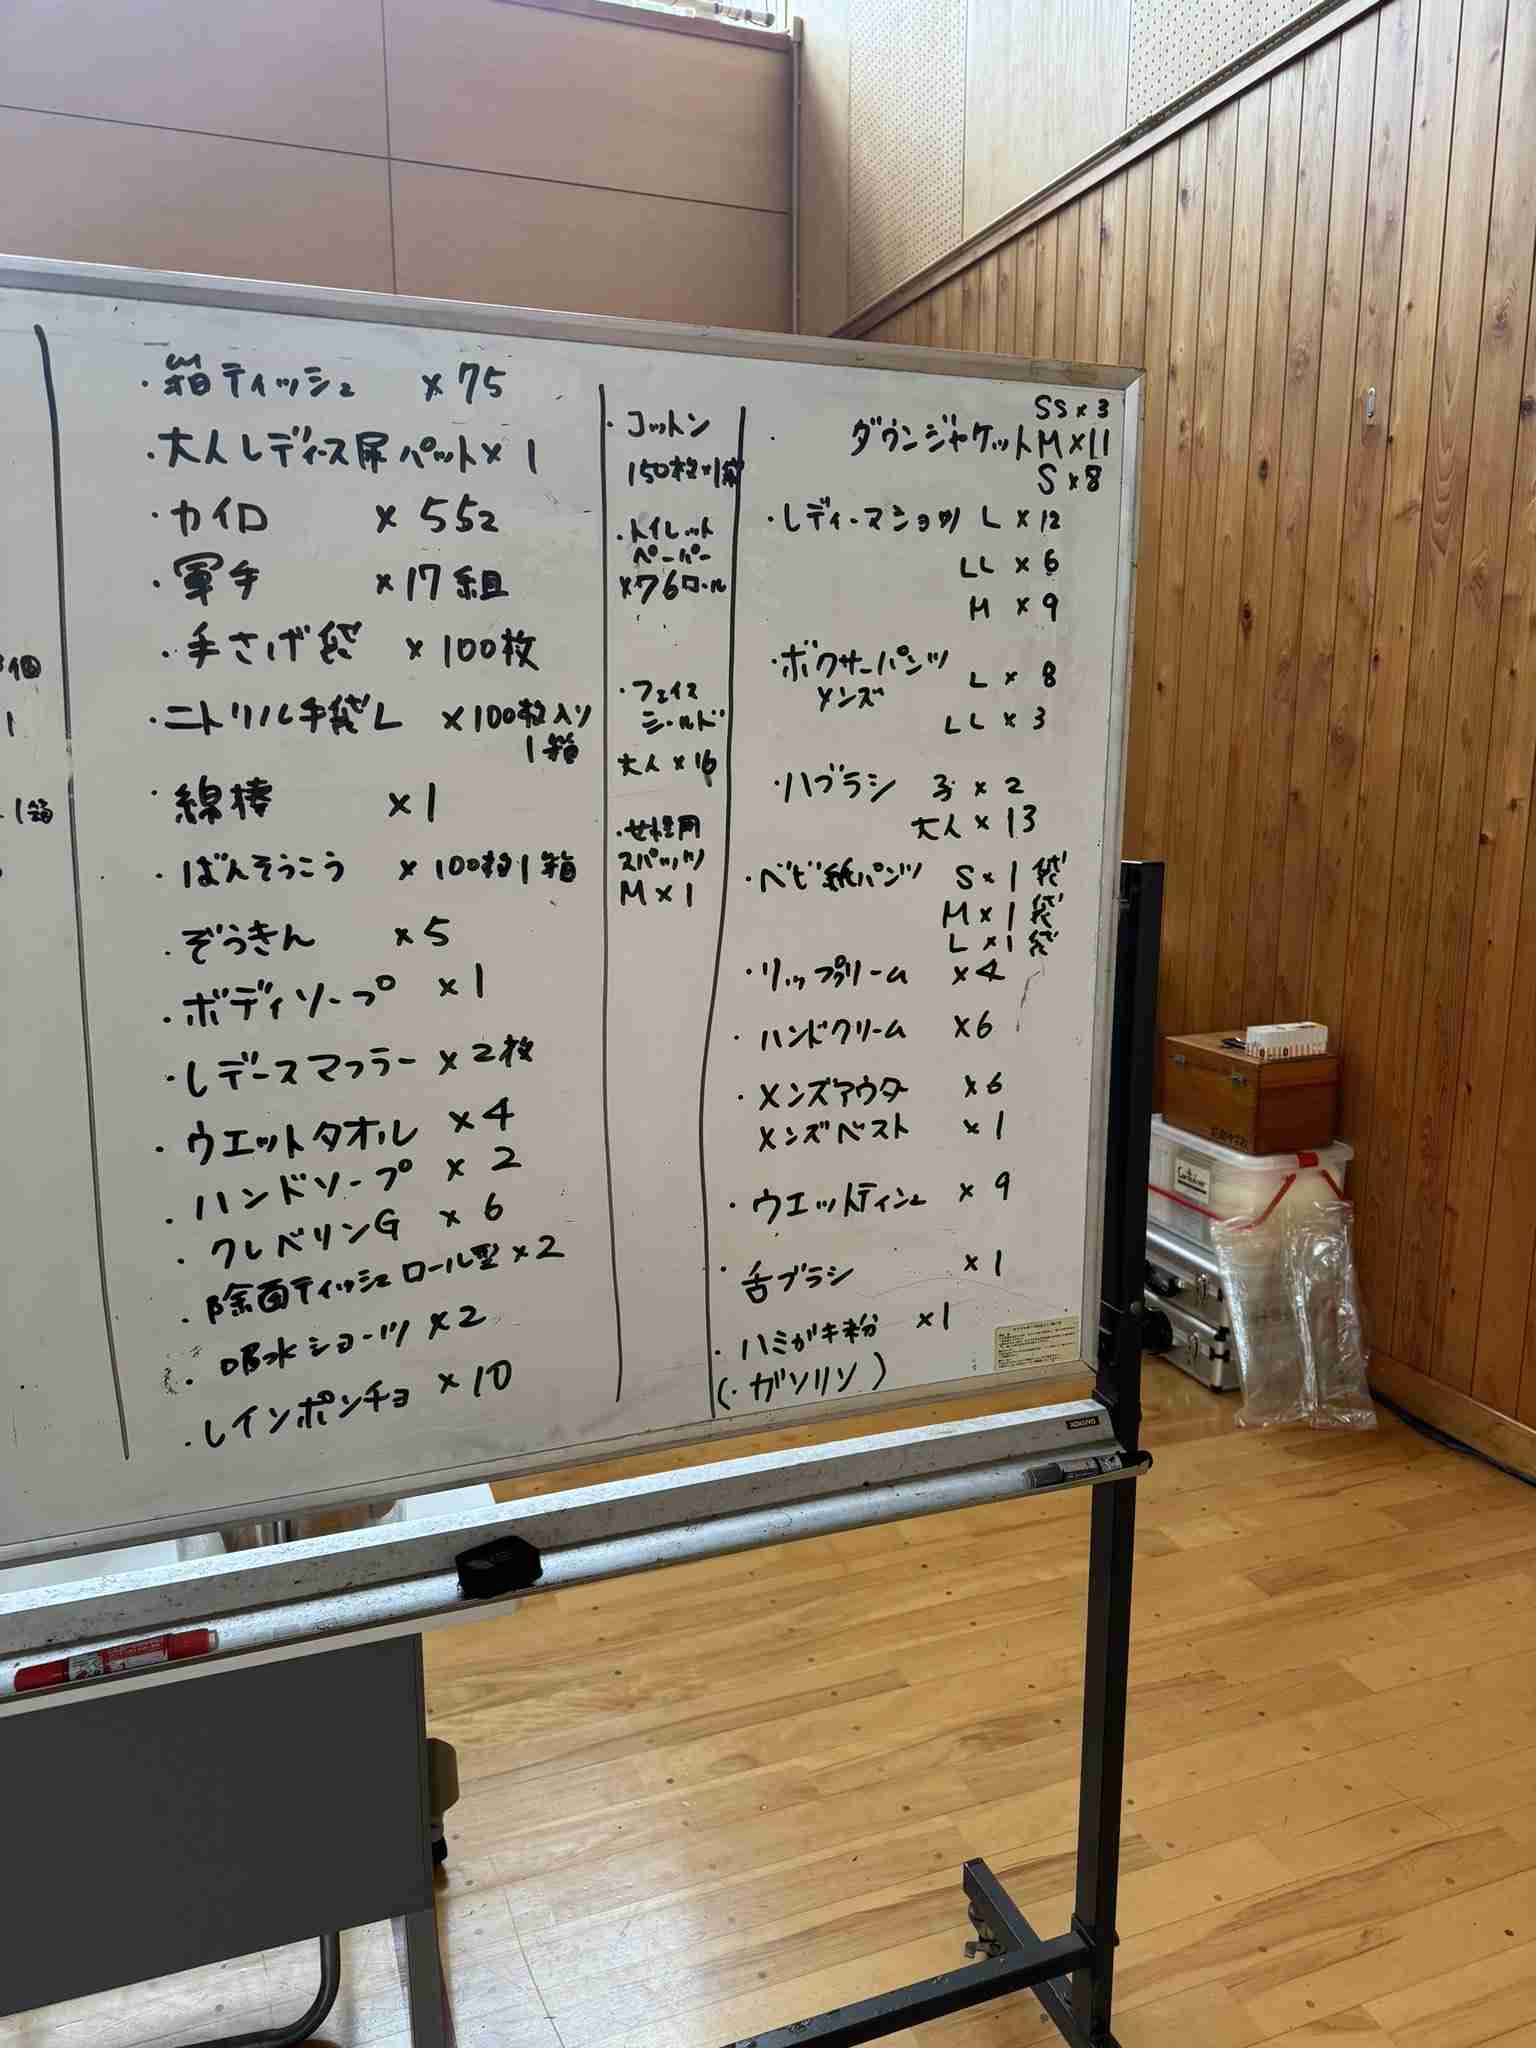 ・箱ティッシュ ×75
・大人レディース尿パット×1
・カイロ ×552
・軍手 ×17組
・手さげ袋 ×100枚
・ニトリル手袋L ×100枚入り
1箱
・綿棒 ×1
・ばんそうこう ×100枚1箱
・ぞうきん ×5
・ボディソープ ×1
・レディースマフラー×2枚
・ウエットタオル ×4
・ハンドソープ ×2
・クレベリンG ×6
・除菌ティッシュロール型×2
・吸水ショーツ×2
・レインポンチョ ×10
・コットン
150枚×1箱
・トイレット
ペーパー
×76ロール
・フェイス
シールド
大人×16
・女性用
スパッツ
M×1
SS×3
・ダウンジャケットM×11
S×8
・レディースショーツ L×12
LL×6
M×9
・ボクサーパンツ L×8
メンズ
LL×3
・ハブラシ 子×2
大人×13
・ベビ紙パンツ S×1袋
M×1袋
L×1袋
・リップクリーム ×4
・ハンドクリーム ×6
・メンズアウター ×6
メンズベスト ×1
・ウエットティッシュ ×9
・舌ブラシ ×1
・ハミガキ粉 ×1
(・ガソリン)
個
1
1箱
Container
KOKUYO